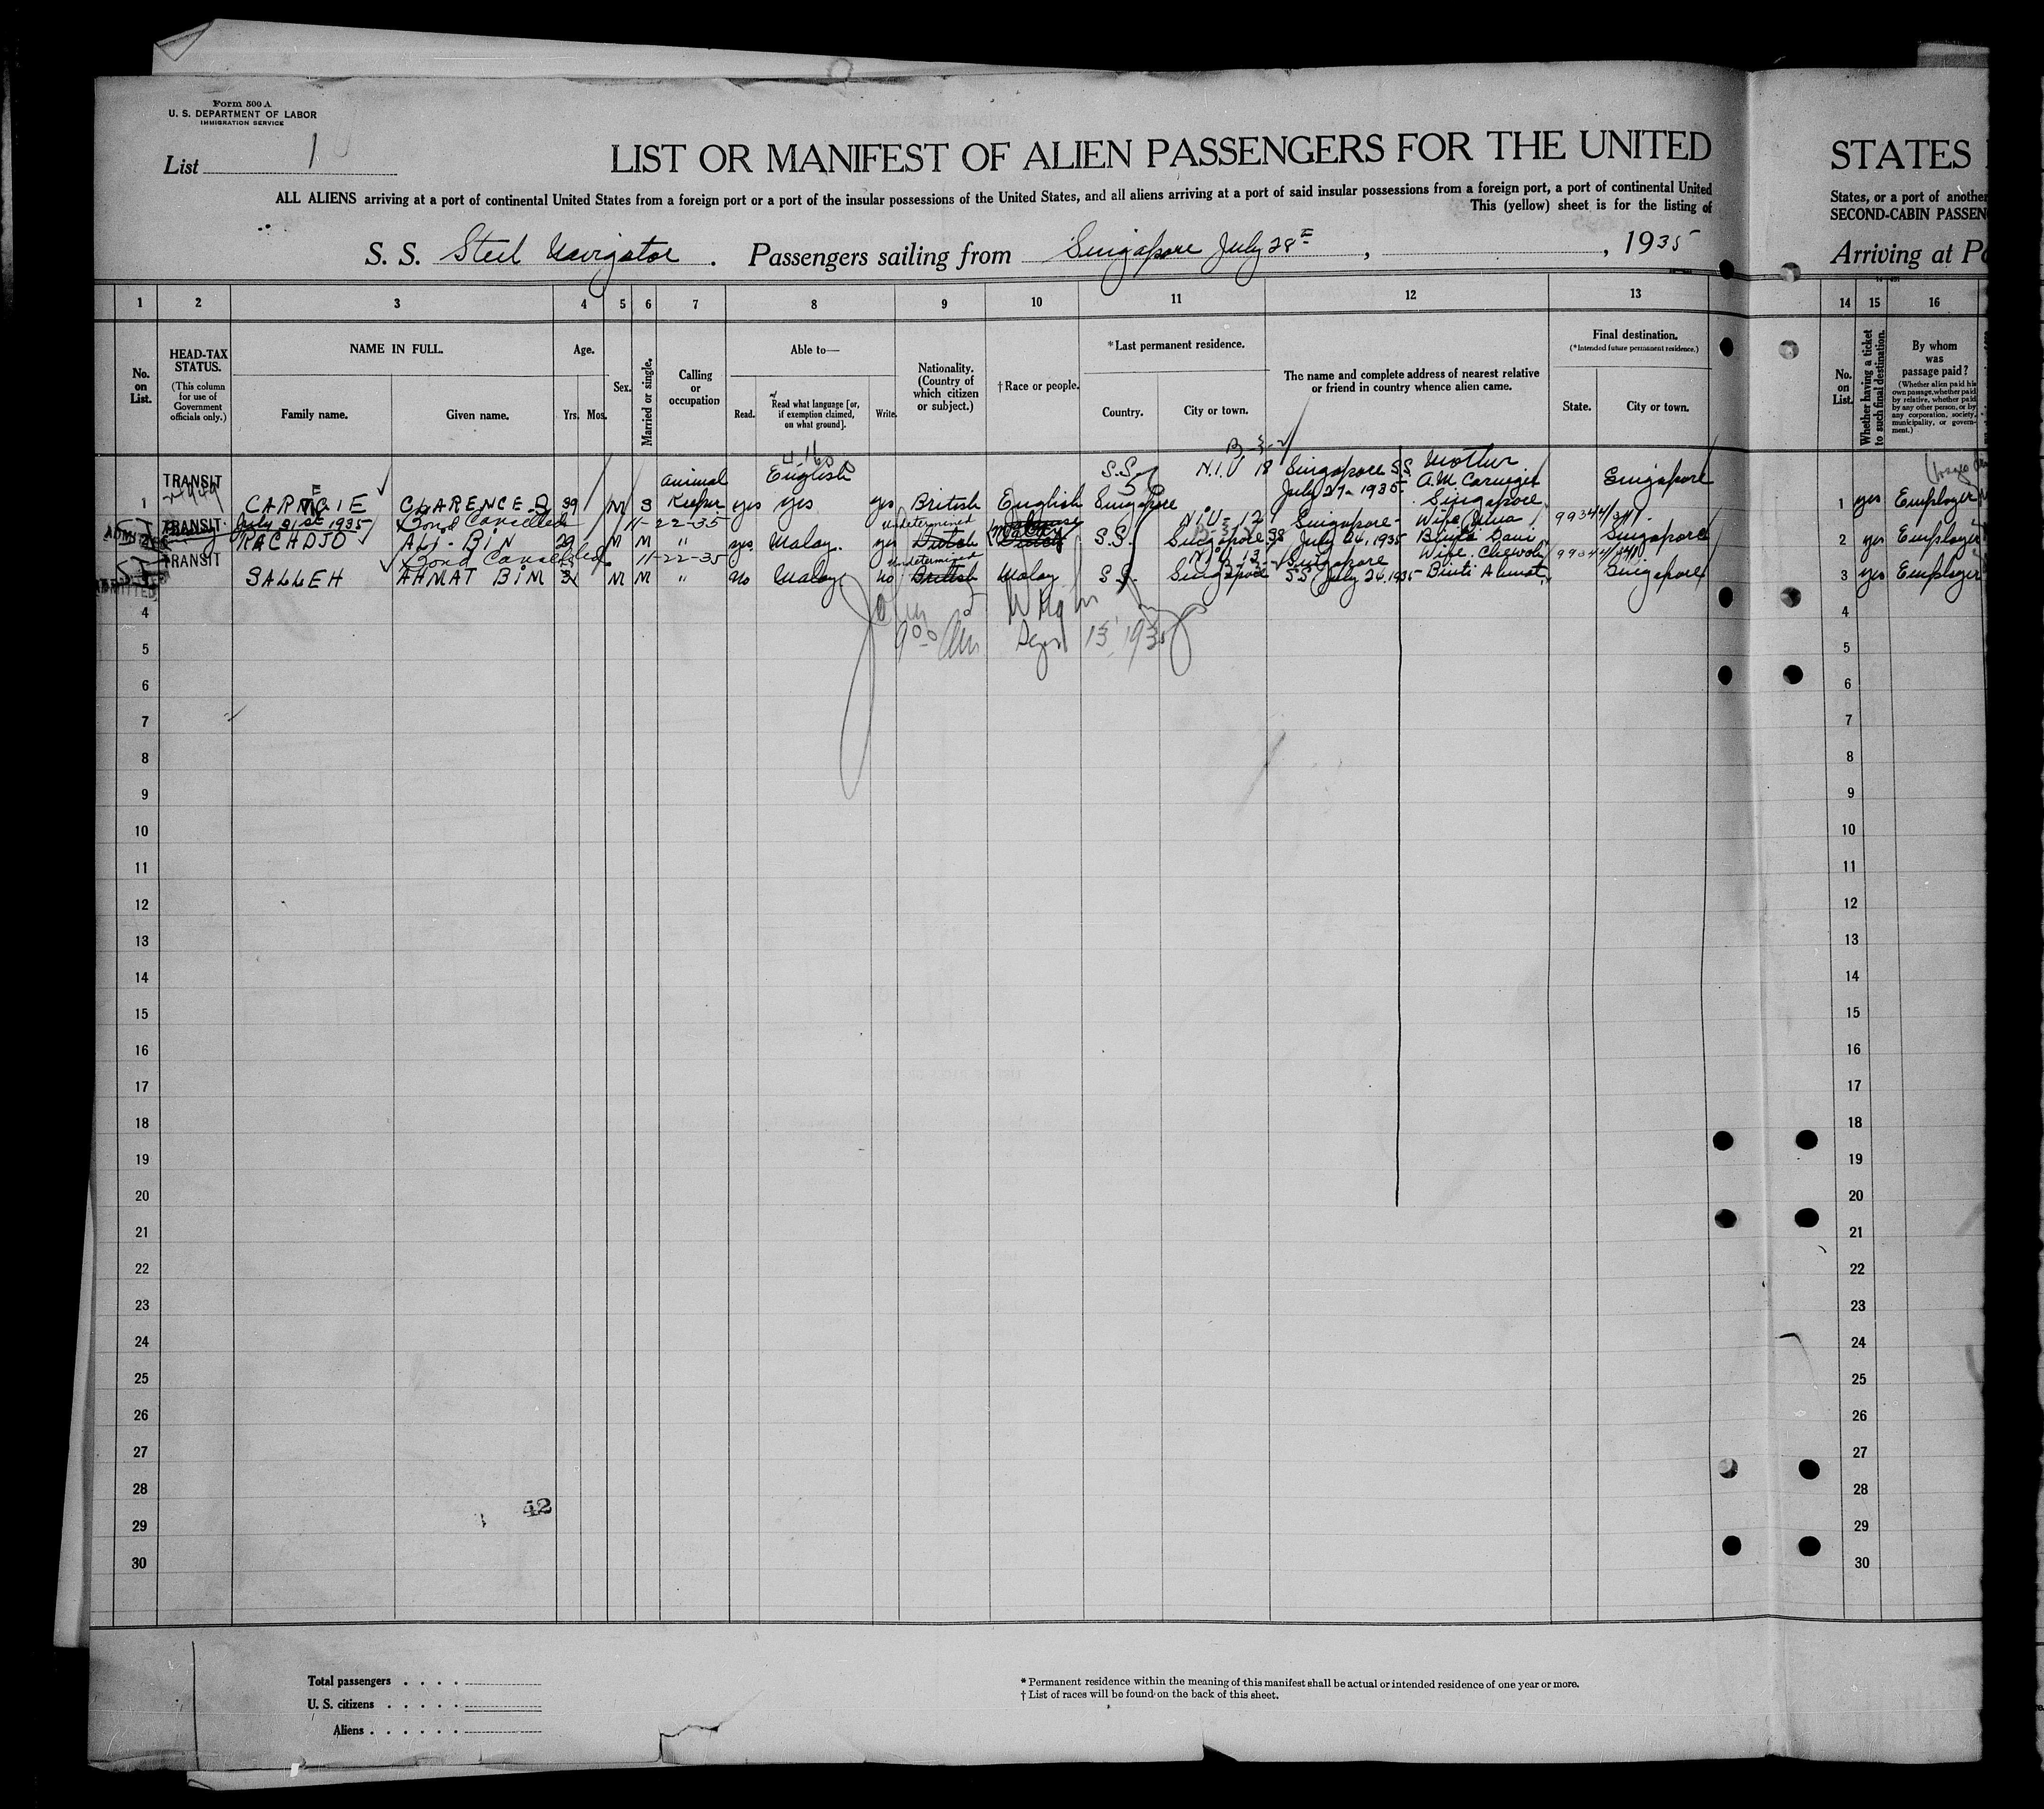 Form 500 A
U. S. DEPARTMENT OF LABOR
IMMIGRATION SERVICE
List 1
LIST OR MANIFEST OF ALIEN PASSENGERS FOR THE UNITED
STATES
ALL ALIENS arriving at a port of continental United States from a foreign port or a port of the insular possessions of the United States, and all aliens arriving at a port of said insular possessions from a foreign port, a port of continental United
States, or a port of another
This (yellow) sheet is for the listing of
SECOND-CABIN PASSEN
S. S. Steel Navigator . Passengers sailing from Singapore July 28th , , 1935
Arriving at Po
1 2 3 4 5 6 7 8 9 10 11 12 13 14 15 16
No. on List.
HEAD-TAX STATUS.
(This column for use of Government officials only.)
NAME IN FULL.
Family name. Given name.
Age.
Yrs. Mos.
Sex.
Married or single.
Calling or occupation
Able to—
Read. Read what language [or, if exemption claimed, on what ground]. Write.
Nationality. (Country of which citizen or subject.)
† Race or people.
*Last permanent residence.
Country. City or town.
The name and complete address of nearest relative or friend in country whence alien came.
Final destination.
(*Intended future permanent residence.)
State. City or town.
No. on List.
Whether having a ticket to such final destination.
By whom was passage paid?
(Whether alien paid his own passage, whether paid by relative, whether paid by any other person, or by any corporation, society, municipality, or government.)
TRANSIT animal English S.S. N.I.V 18 Singapore SS Mother Singapore
July 27-1935. A.M. Carnegie
1 CARNEGIE CLARENCE 39 M S Keeper yes yes yes British English Singapore Singapore 1 yes Employer
TRANSIT July 31st 1935 Bond Cancelled 11-22-35 undetermined N.I.V-12 Singapore- Wife 99344/341
2 RACHDJO ALI-BIN 29 M M " yes Malay yes Dutch Dutch S.S. Singapore July 24, 1935 Singapore 2 yes Employer
TRANSIT Bond Cancelled 11-22-35 undetermined N.I.V 13 Singapore Wife 99344/341
ADMITTED
3 SALLEH AHMAT BIN 31 M M " No Malay No British Malay S.S. Singapore SS July 24, 1935 Binti Ahmat Singapore 3 yes Employer
4 4
9 00 AM 13 1935
5 5
6 6
7 7
8 8
9 9
10 10
11 11
12 12
13 13
14 14
15 15
16 16
17 17
18 18
19 19
20 20
21 21
22 22
23 23
24 24
25 25
26 26
27 27
28 28
42
29 29
30 30
Total passengers . . . .
U. S. citizens . . . . .
Aliens . . . . . .
* Permanent residence within the meaning of this manifest shall be actual or intended residence of one year or more.
† List of races will be found on the back of this sheet.